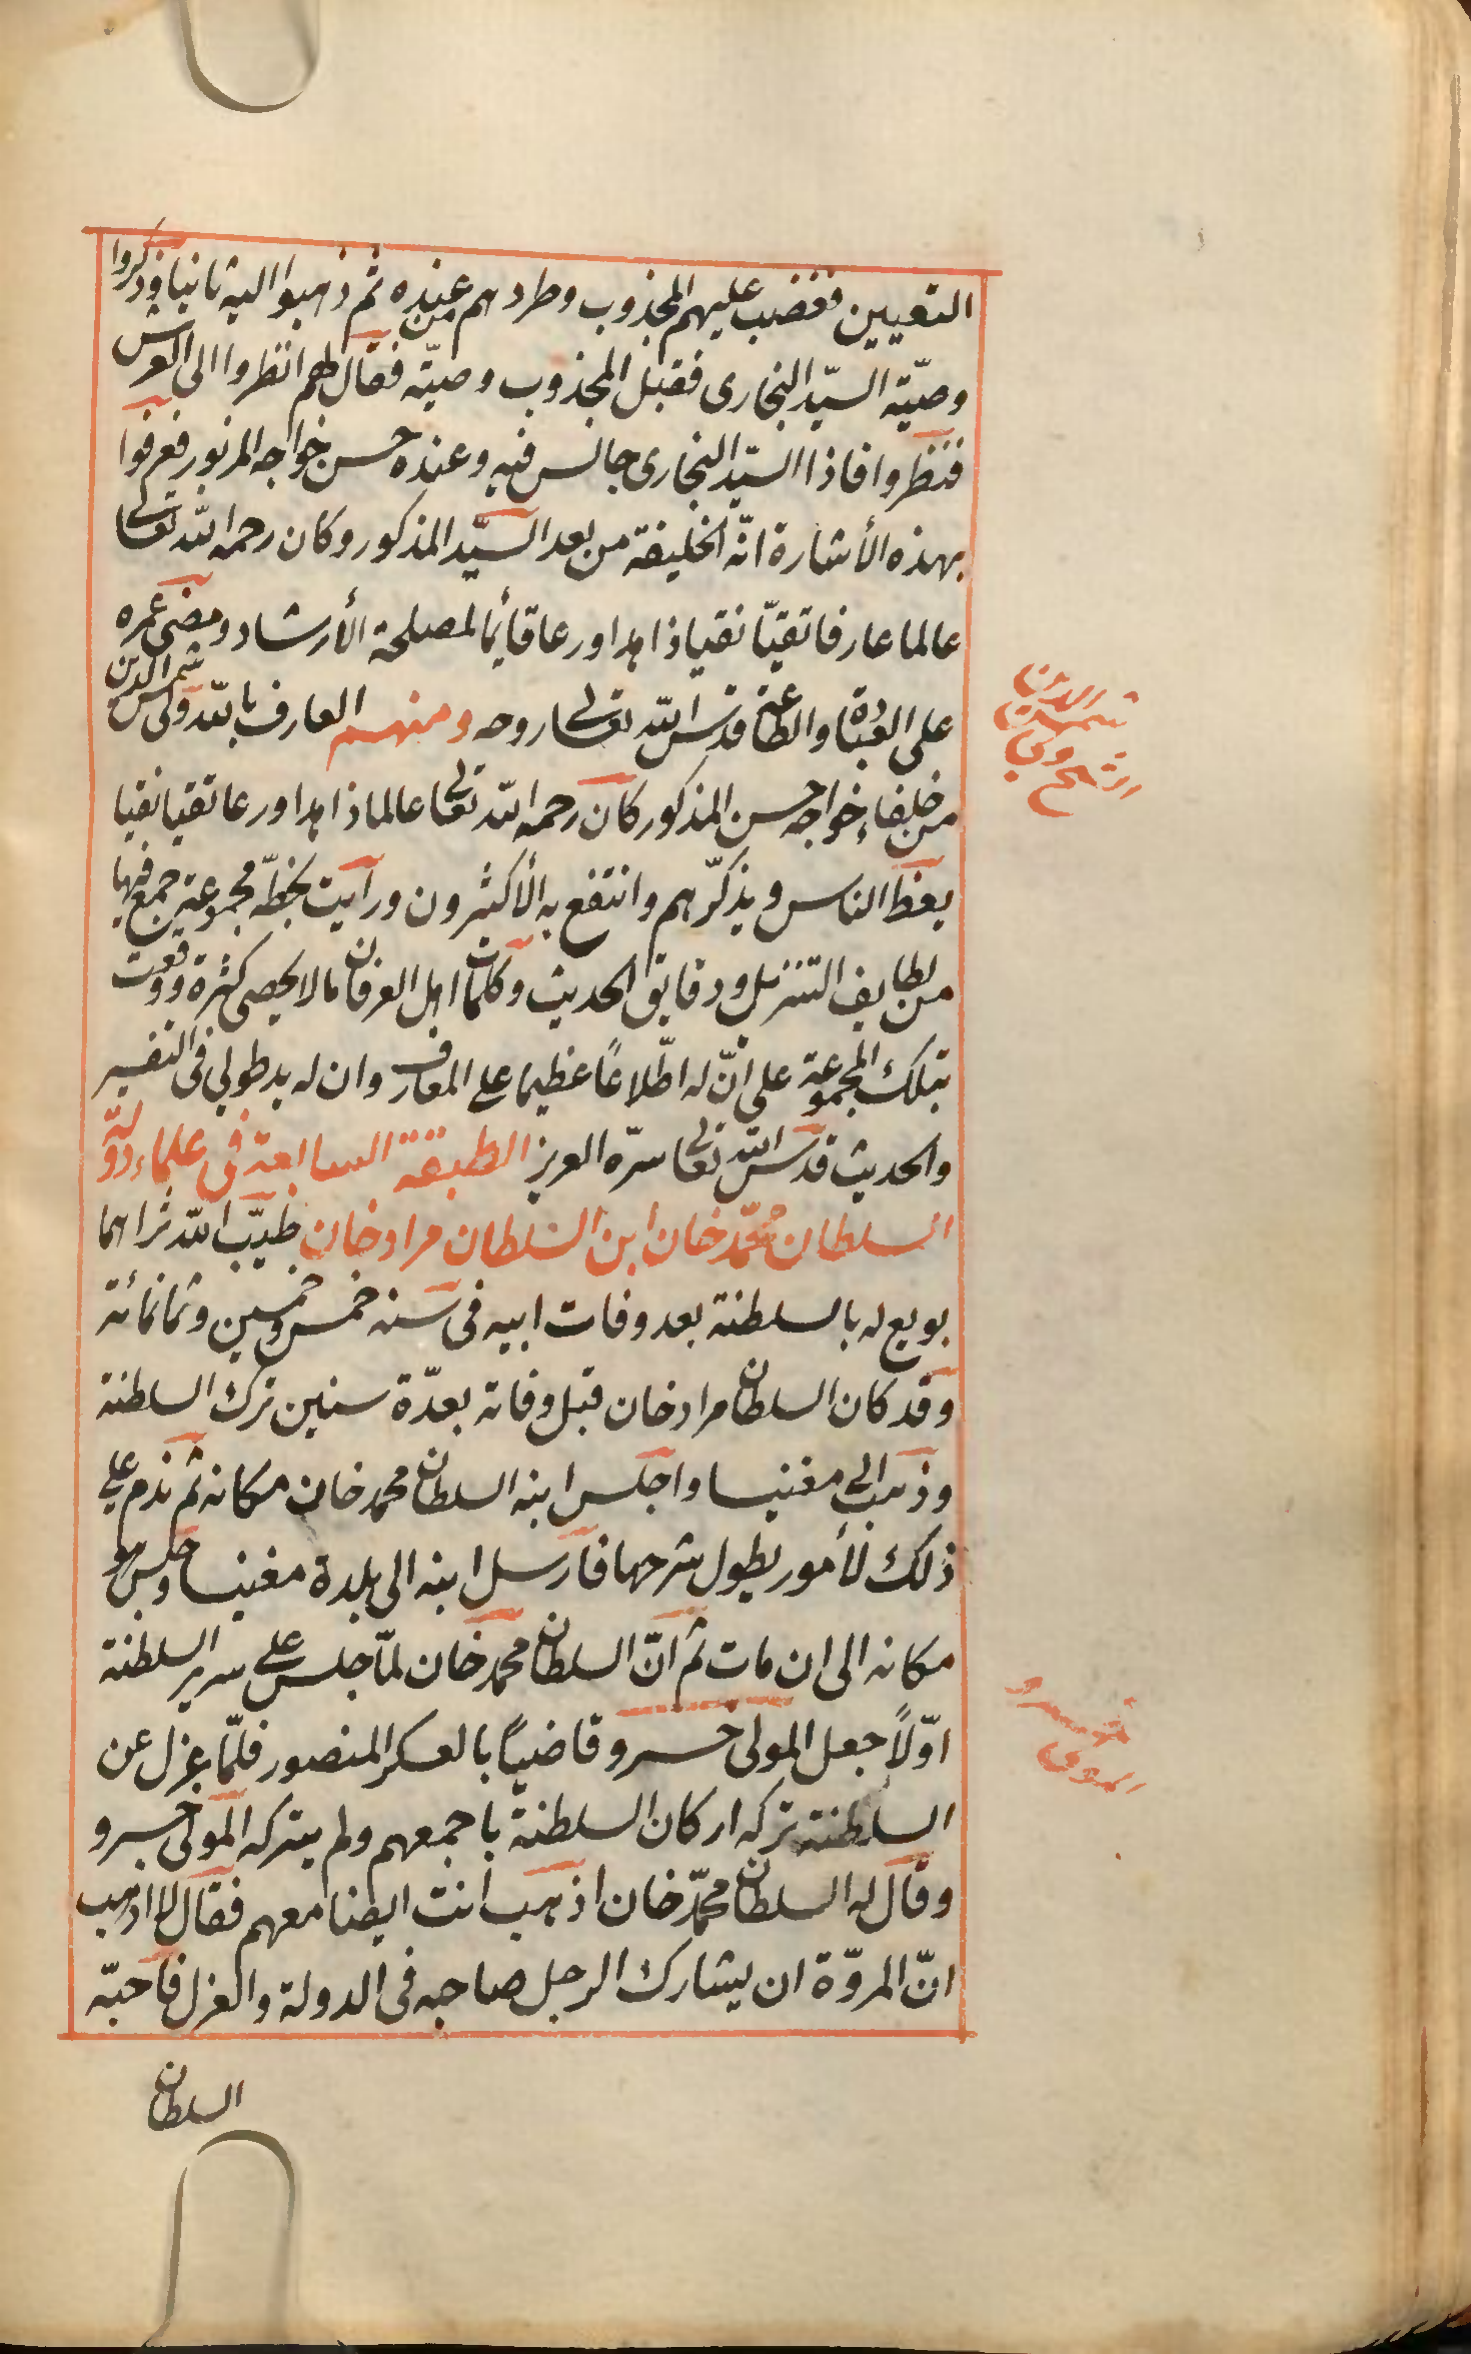 التعيين فغضب عليهم المجذوب وطردهم من عنده ثم ذهبوا اليه ثانيا وذكروا
وصيّة السيّد البخارى فقبل المجذوب وصيّته فقال لهم انظروا الى العرش
فنظروا فاذا السيّد البخارى جالس فيه وعنده حسن خواجه المزبور فعرفوا
بهذه الأشارة انّه الخليفة من بعد السيّد المذكور وكان رحمه الله تعالى
عالما عارفا تقيّا نقيا زاهدا ورعا قائما لمصلحة الأرشاد ومضى عمره
على العبادة والطاعة قدس الله تعالى روحه ومنهم العارف بالله ولى شمس الدين
من خلفاء خواجه حسن المذكور كان رحمه الله تعالى عالما زاهدا ورعا تقيا نقيا
يعظ الناس ويذكّرهم وانتفع به الأكثرون ورأيت بخطّه مجموعة جمع فيها
من لطايف التنزيل ودقايق الحديث وكلمات اهل العرفان مالا يحصى كثرة ووقعت
بتلك المجموعة على انّ له اطّلاعًا عظيما على المعارف وان له يد طولى فى التفسير
والحديث قدّس الله تعالى سرّه العزيز الطبقة السابعة فى علماء دولة
السلطان محمّد خان ابن السلطان مراد خان طيّب الله ثراهما
بويع له بالسلطنة بعد وفات ابيه فى سنه خمس وخمسين وثمانمائة
وقد كان السلطان مراد خان قبل وفاته بعدّة سنين ترك السلطنة
وذهب الى مغنيسا واجلس ابنه السلطان محمد خان مكانه ثم ندم على
ذلك لأمور يطول شرحها فأرسل ابنه الى بلدة مغنيسا وجلس هو
مكانه الى ان مات ثم انّ السلطان محمد خان لمّا جلس على سرير السلطنة
اوّلاً جعل المولى خسرو قاضيًا بالعسكر المنصور فلمّا عزل عن
السلطنة تركه اركان السلطنة باجمعهم ولم يتركه المولى خسرو
وقال له السلطان محمّد خان اذهب انت ايضا معهم فقال لا اذهب
انّ المروّة ان يشارك الرجل صاحبه فى الدولة والعزل فأحبّه
السلطان
شمس الدين
خسرو
المولى